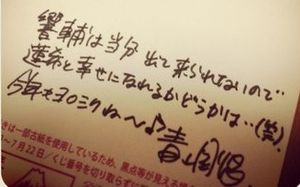 響輔は当分 出て来られないので…
蓮希と幸せになれるかどうかは…(笑)
今年もヨロシクねへ♪ 青山剛昌
きは一部古紙を使用しているため、黒点等が見える
～7月22日／くじ番号を切り取らずに